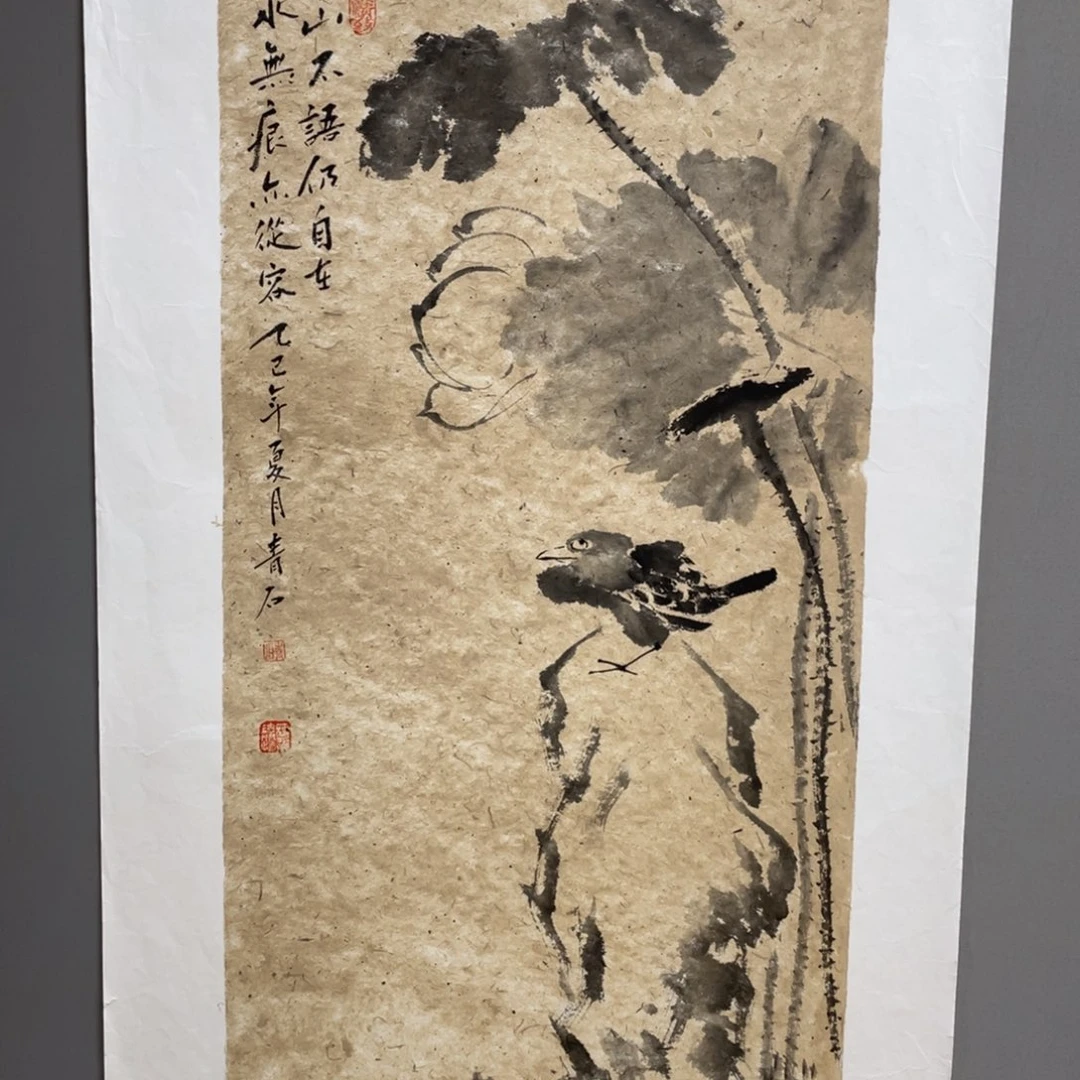 山不語仍自在
水無痕亦從容乙巳年夏月青石